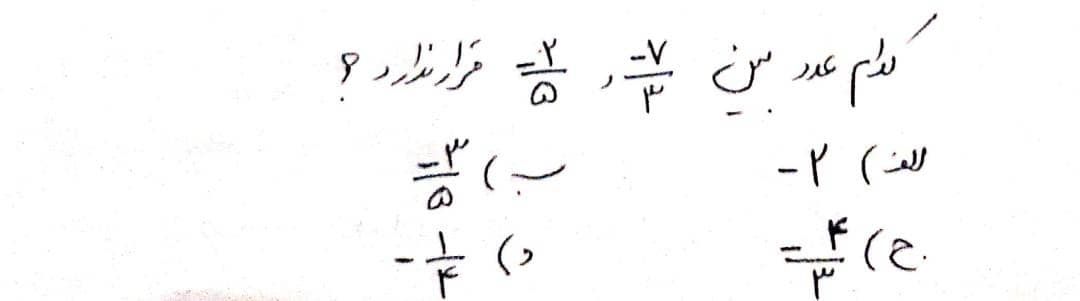 کدام عدد بین -۷/۳ و -۲/۵ قرار ندارد؟
الف) -۲ ب) -۳/۵
ج) -۴/۳ د) -۱/۴